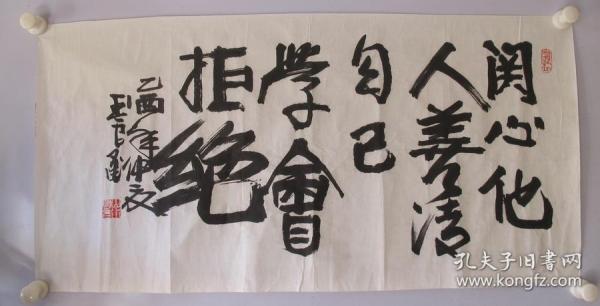 関心他
人善清
自己
学會
拒绝
乙酉年仲夏
孔夫子旧书网
www.kongfz.com